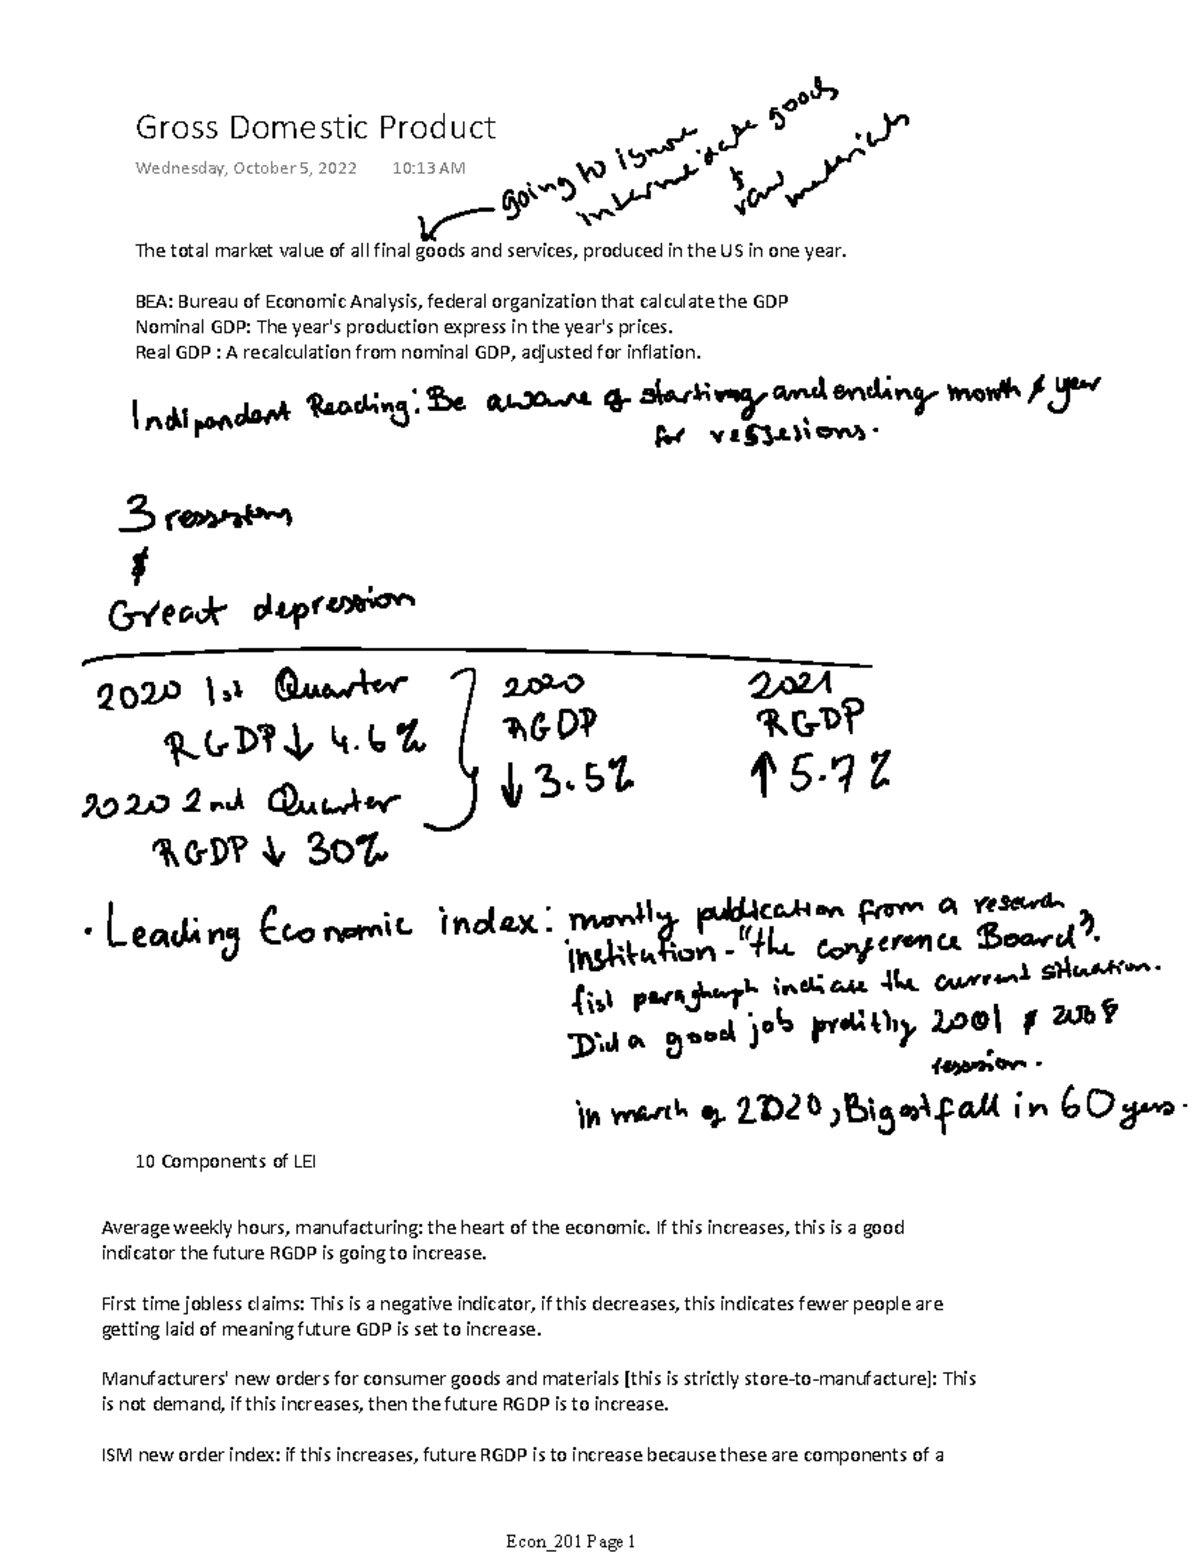 Gross Domestic Product
Wednesday, October 5, 2022 10:13 AM
going to ignore
intermediate goods
& raw
materials
The total market value of all final goods and services, produced in the US in one year.
BEA: Bureau of Economic Analysis, federal organization that calculate the GDP
Nominal GDP: The year's production express in the year's prices.
Real GDP : A recalculation from nominal GDP, adjusted for inflation.
Indipendant Reading: Be aware of starting and ending month & year
for ressesions.
3 ressesions
&
Great depression
2020 1st Quarter
RGDP ↓ 4.6%
2020 2nd Quarter
RGDP ↓ 30%
2020
RGDP
↓ 3.5%
2021
RGDP
↑ 5.7%
· Leading Economic index: montly publication from a research
institution - "the conference Board".
fist paragraph indicate the current situation.
Did a good job 2001 & 2008
in march of 2020, Biggest fall in 60 years.
10 Components of LEI
Average weekly hours, manufacturing: the heart of the economic. If this increases, this is a good
indicator the future RGDP is going to increase.
First time jobless claims: This is a negative indicator, if this decreases, this indicates fewer people are
getting laid of meaning future GDP is set to increase.
Manufacturers' new orders for consumer goods and materials [this is strictly store-to-manufacture]: This
is not demand, if this increases, then the future RGDP is to increase.
ISM new order index: if this increases, future RGDP is to increase because these are components of a
Econ_201 Page 1